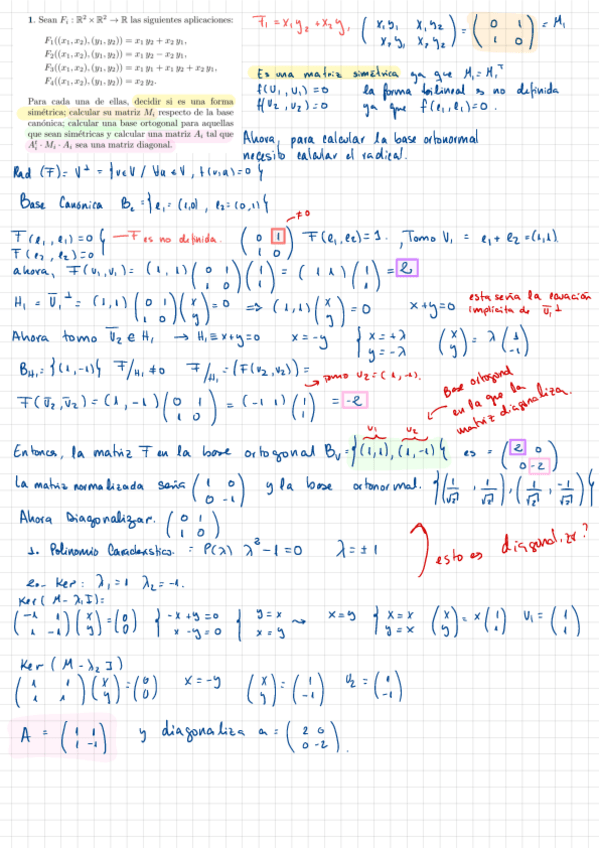 1. Sean F₁ : ℝ² × ℝ² → ℝ las siguientes aplicaciones:
F₁((x₁, x₂), (y₁, y₂)) = x₁ y₂ + x₂ y₁,
F₂((x₁, x₂), (y₁, y₂)) = x₁ y₂ − x₂ y₁,
F₃((x₁, x₂), (y₁, y₂)) = x₁ y₁ + x₁ y₂ + x₂ y₁,
F₄((x₁, x₂), (y₁, y₂)) = x₂ y₂.
Para cada una de ellas, decidir si es una forma
simétrica; calcular su matriz Mᵢ respecto de la base
canónica; calcular una base ortogonal para aquellas
que sean simétricas y calcular una matriz Aᵢ tal que
Aᵢᵗ · Mᵢ · Aᵢ sea una matriz diagonal.
F₁ = x₁y₂ + x₂y₁ (x₁y₁ x₁y₂ ; x₂y₁ x₂y₂) = (0 1 ; 1 0) = M₁
Es una matriz simétrica ya que M₁ = M₁ᵀ
f(U₁, U₁) = 0 la forma bilineal es no definida
f(U₂, U₂) = 0 ya que f(e₁, e₁) = 0.
Ahora, para calcular la base ortonormal
necesito calcular el radical.
Rad (F) = V⊥ = {v∈V / ∀u∈V, f(v,u) = 0}
Base Canónica B_c = {e₁ = (1,0), e₂ = (0,1)}
≠0
F(e₁, e₁) = 0 } — F es no definida. (0 1 ; 1 0) F(e₁, e₂) = 1. , Tomo V₁ = e₁ + e₂ = (1,1)
F(e₂, e₂) = 0
ahora, F(v₁, v₁) = (1, 1) (0 1 ; 1 0) (1 ; 1) = (1 1) (1 ; 1) = 2
H₁ = U₁⊥ = (1, 1) (0 1 ; 1 0) (x ; y) = 0 ⇒ (1, 1) (x ; y) = 0 x + y = 0 esta sería la ecuación
implícita de U₁⊥
Ahora tomo U₂ ∈ H₁ → H₁ ≡ x+y=0 x = -y { x = +λ ; y = -λ (x ; y) = λ (1 ; -1)
B_H₁ = {(1, -1)} F/H₁ ≠ 0 F/H₁ = (F(v₂, v₂)) =
→ tomo v₂ = (1, -1).
F(v₂, v₂) = (1, -1) (0 1 ; 1 0) = (-1 1) (1 ; 1) = -2
Base ortogonal
en la que la
matriz diagonaliza.
v₁ v₂
Entonces, la matriz F en la base ortogonal B_v = {(1,1), (1,-1)} es = (2 0 ; 0 -2)
La matriz normalizada sería (1 0 ; 0 -1) y la base ortonormal. {(1/√2, 1/√2), (1/√2, -1/√2)}
Ahora Diagonalizar. (0 1 ; 1 0)
1. Polinomio Característico. = P(λ) λ² - 1 = 0 λ = ±1
esto es diagonalizar?
2.- Ker: λ₁ = 1 λ₂ = -1.
Ker(M - λ₁I):
(-1 1 ; 1 -1) (x ; y) = (0 ; 0) { -x + y = 0 ; x - y = 0 { y = x ; x = y x = y { x = x ; y = x (x ; y) = x (1 ; 1) v₁ = (1 ; 1)
Ker (M - λ₂I)
(1 1 ; 1 1) (x ; y) = (0 ; 0) x = -y (x ; y) = (1 ; -1) v₂ = (1 ; -1)
A = (1 1 ; 1 -1) y diagonaliza a = (2 0 ; 0 -2).